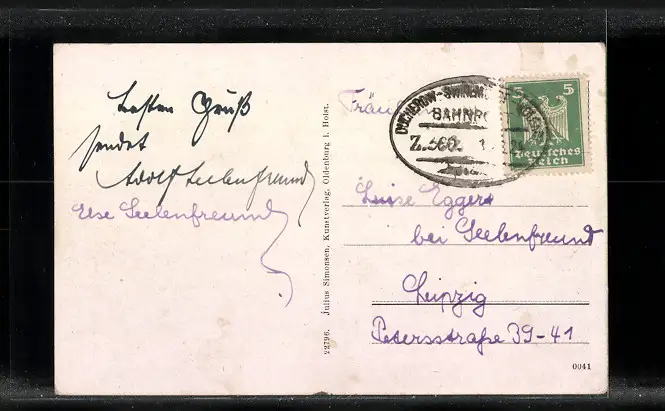 besten Gruß
sendet
Adolf Seelenfreund
Else Seelenfreund
22796. Julius Simonsen, Kunstverlag, Oldenburg i. Holst.
BAHNPO
5 5
Deutsches
Reich
Luise Eggers
bei Seelenfreund
Leipzig
Petersstraße 39-41
0041